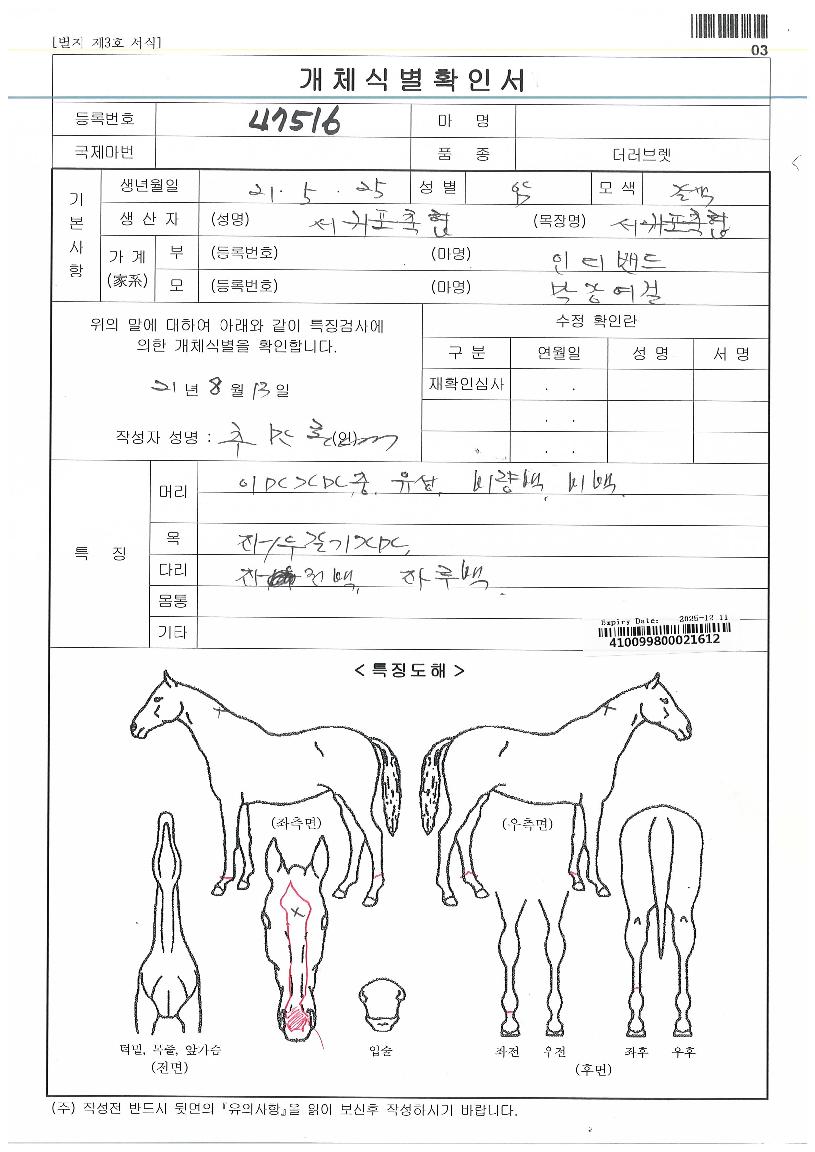 [별지 제3호 서식]
03
개체식별확인서
등록번호 47516 마 명
국제마번 품 종 더러브렛
기본사항
생년월일 21. 5. 25 성 별 암 모 색
생 산 자 (성명) 서귀포축협 (목장명) 서귀포축협
가 계 (家系) 부 (등록번호) (마명) 인디밴드
모 (등록번호) (마명)
위의 말에 대하여 아래와 같이 특징검사에
의한 개체식별을 확인합니다.
21 년 8 월 13 일
작성자 성명 : (인)
수정 확인란
구 분 연월일 성 명 서 명
재확인심사 . .
. .
. .
특 징
머리 유성, 비량백, 비백.
목
다리
몸통
기타
Expiry Date: 2025-12-11
410099800021612
< 특징도해 >
(좌측면) (우측면)
턱밑, 목줄, 앞가슴
(전면)
입술
좌전 우전 좌후 우후
(후면)
(주) 작성전 반드시 뒷면의 『유의사항』을 읽어 보신후 작성하시기 바랍니다.